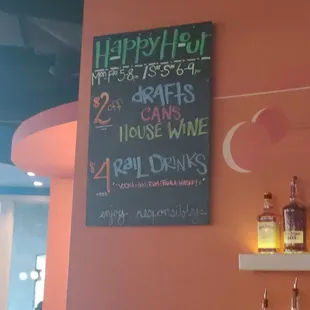 Happy Hour
Mon-Fri 5-8 /
$2 OFF
DRAFTS
CANS
HOUSE WINE
$4 RAIL DRINKS
enjoy responsibly